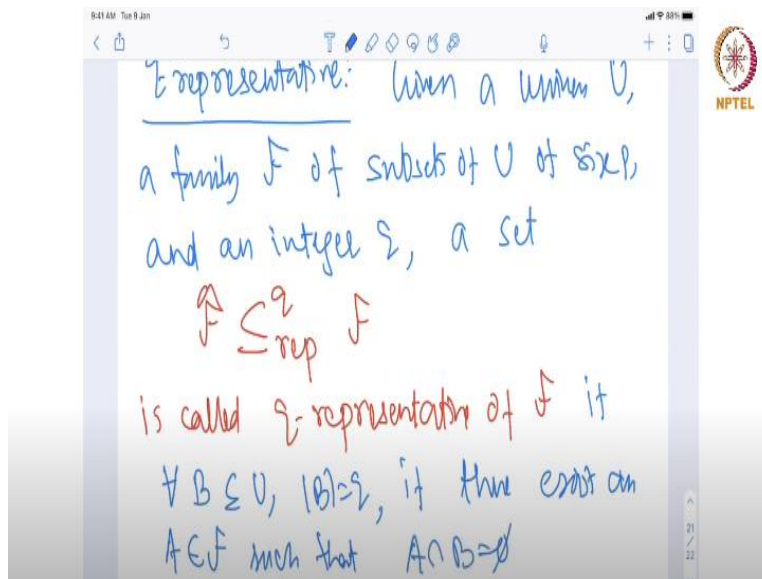 9:41 AM Tue 9 Jan
88%
NPTEL
q representative: Given a universe U,
a family F of subsets of U of size p,
and an integer q, a set
F̂ ⊆^q_rep F
is called q-representative of F if
∀ B ⊆ U, |B|=q, if there exist an
A ∈ F such that A ∩ B = ∅
21
22